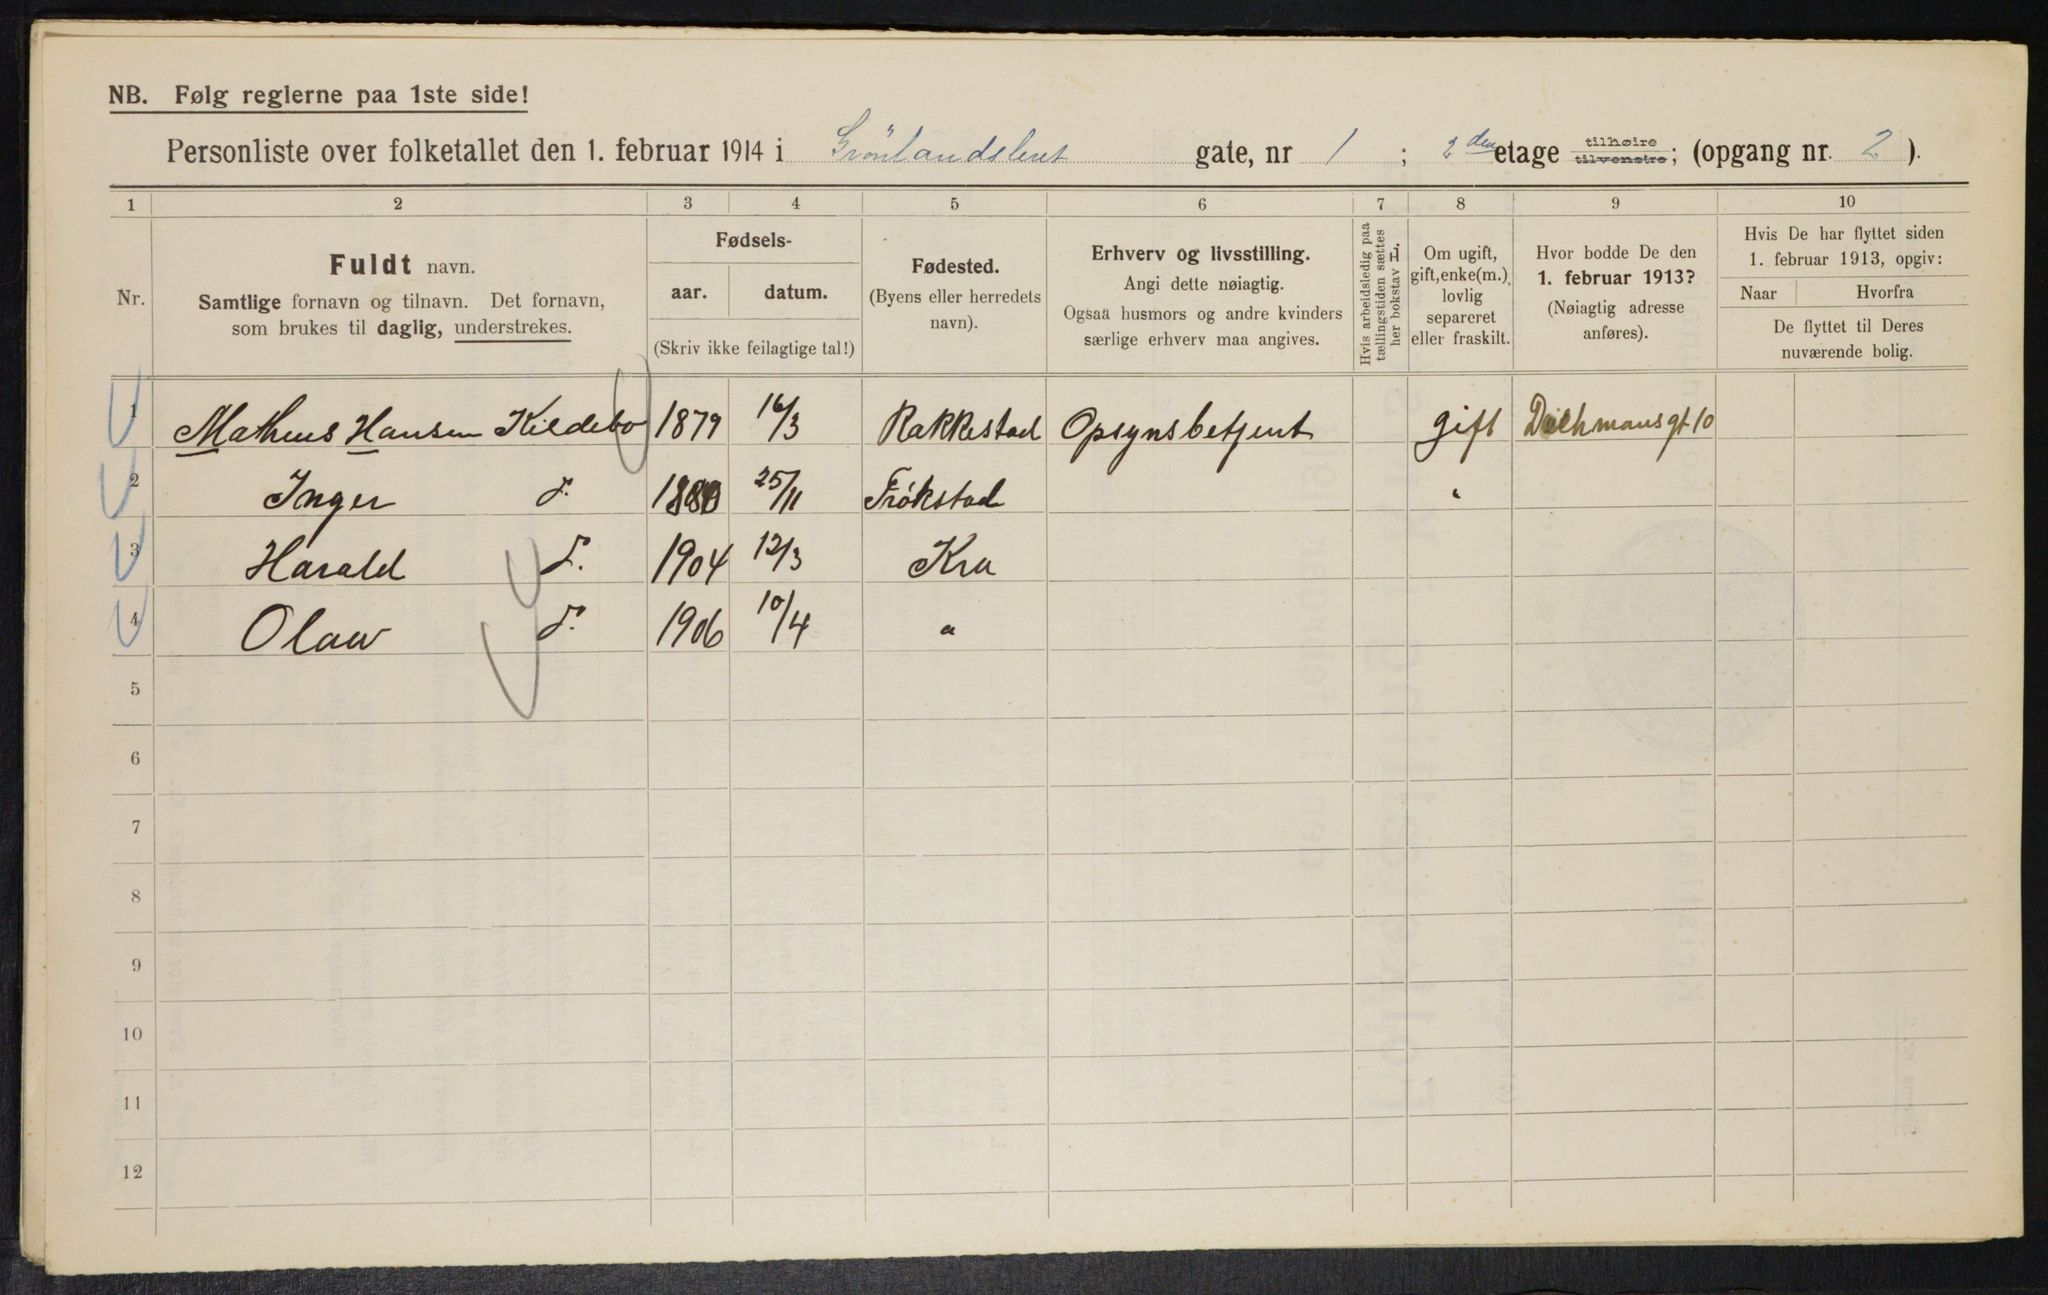 NB. Følg reglerne paa 1ste side!
Personliste over folketallet den 1. februar 1914 i Grønlandsleret gate, nr 1 ; 2den etage tilhøire tilvenstre; (opgang nr. 2 ).
1 2 3 4 5 6 7 8 9 10
Nr.
Fuldt navn.
Samtlige fornavn og tilnavn. Det fornavn,
som brukes til daglig, understrekes.
Fødsels-
aar. datum.
(Skriv ikke feilagtige tal!)
Fødested.
(Byens eller herredets
navn).
Erhverv og livsstilling.
Angi dette nøiagtig.
Ogsaa husmors og andre kvinders
særlige erhverv maa angives.
Hvis arbeidsledig paa
tællingstiden sættes
her bokstav L.
Om ugift,
gift, enke(m.),
lovlig
separeret
eller fraskilt.
Hvor bodde De den
1. februar 1913?
(Nøiagtig adresse
anføres).
Hvis De har flyttet siden
1. februar 1913, opgiv:
Naar Hvorfra
De flyttet til Deres
nuværende bolig.
1 Matheus Hansen Kildebo 1879 16/3 Rakkestad Opsynsbetjent gift Deichmansgt 10
2 Inger d. 1880 25/11 Trøkstad "
3 Harald d. 1904 12/3 Kra
4 Olaw d. 1906 10/4 "
5
6
7
8
9
10
11
12